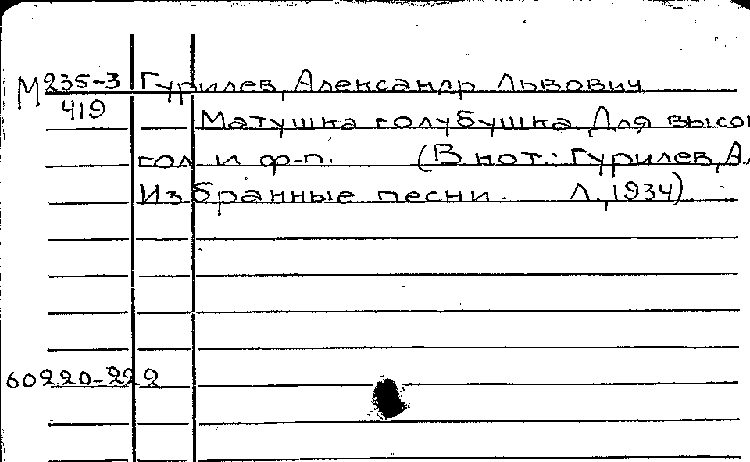 М 235-3 Гурилев, Александр Львович
419
Матушка голубушка. Для высо
гол и ф-п. (В нот.: Гурилев, А.
Избранные песни. Л., 1934)
60220-222